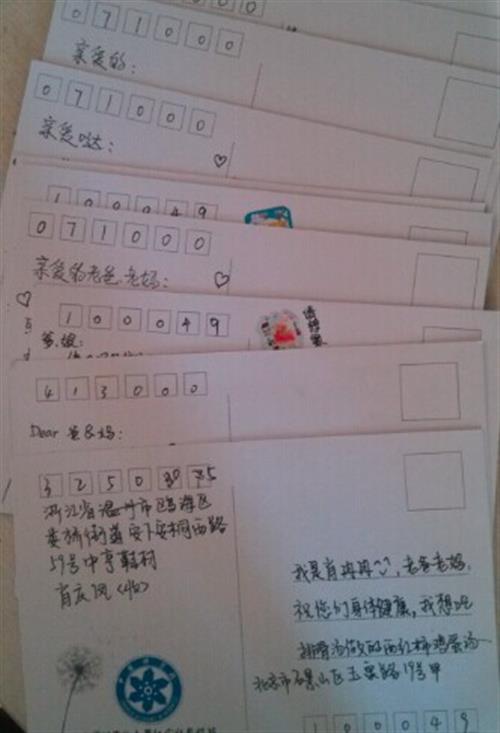 0 0 0
0 7 1 0 0 0
亲爱的：
0 7 1 0 0 0
亲爱哒：
1 0 0 0 4 9
0 7 1 0 0 0
亲爱的老爸、老妈：
1 0 0 0 4 9
爹、娘：
4 1 3 0 0 0
Dear 爸&妈：
3 2 5 0
浙江省温州市瓯海区
娄桥街道安下安桐西路
59号中亨鞋材
肖庆凤<收>
我是肖冉冉^^，老爸老妈，
祝您们身体健康，我想吃
排骨汤做的西红柿鸡蛋汤~
北京市石景山区玉泉路19号甲
1 0 0 0 4 9